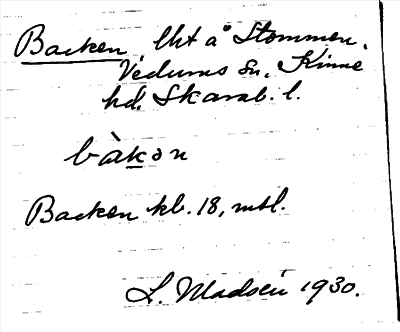 Backen, lht å Stommen,
Vedums sn, Kinne
hd, Skarab. l.
bàkən
Backen kb. 18, mtl.
L. Madsén 1930.